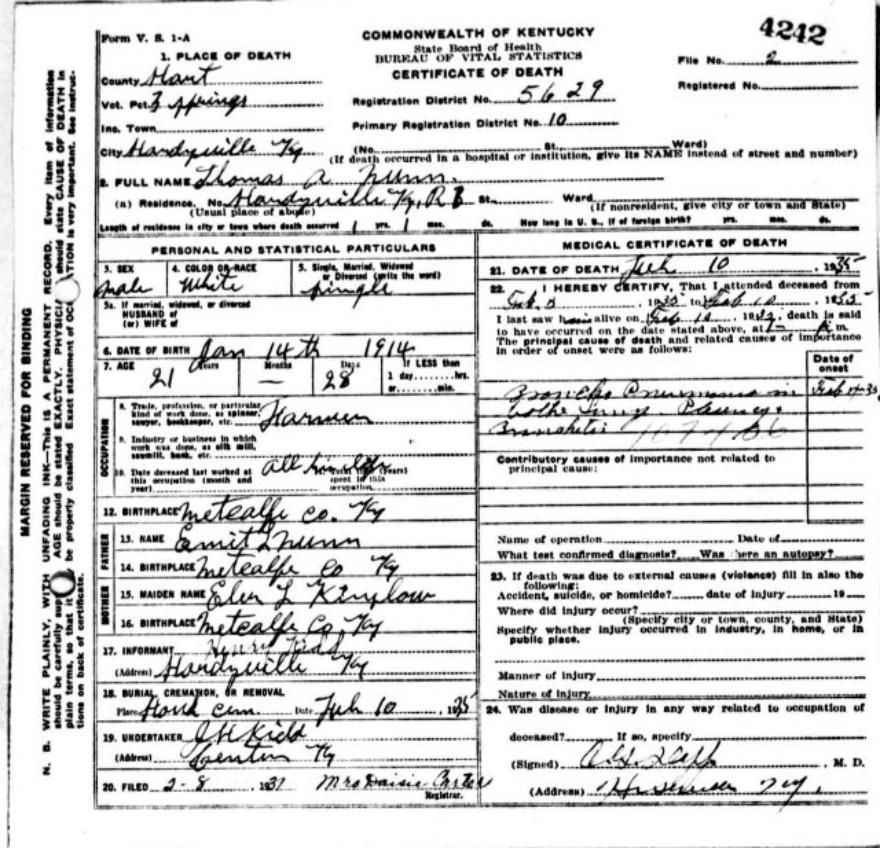 4242
Form V. S. 1-A
COMMONWEALTH OF KENTUCKY
State Board of Health
BUREAU OF VITAL STATISTICS
CERTIFICATE OF DEATH
File No. 2
Registered No.
1. PLACE OF DEATH
County Hart
Vot. Pct. 3 Springs
Inc. Town
City Hardyville Ky
Registration District No. 5629
Primary Registration District No. 10
(No. St. Ward)
(If death occurred in a hospital or institution, give its NAME instead of street and number)
2. FULL NAME Thomas A. Nunn.
(a) Residence. No. Hardyville Ky, R St. Ward
(Usual place of abode) (If nonresident, give city or town and State)
Length of residence in city or town where death occurred 1 yrs. 1 mos. ds. How long in U. S., if of foreign birth? yrs. mos. ds.
PERSONAL AND STATISTICAL PARTICULARS
3. SEX male
4. COLOR OR RACE White
5. Single, Married, Widowed or Divorced (write the word) Single
5a. If married, widowed, or divorced
HUSBAND of
(or) WIFE of
6. DATE OF BIRTH Jan 14th 1914
7. AGE 21 Years — Months 28 Days If LESS than 1 day hrs. or min.
OCCUPATION
8. Trade, profession, or particular kind of work done, as spinner, sawyer, bookkeeper, etc. Farmer
9. Industry or business in which work was done, as silk mill, sawmill, bank, etc.
10. Date deceased last worked at this occupation (month and year) All kinds (years) spent in this occupation
12. BIRTHPLACE Metcalfe Co. Ky
FATHER
13. NAME Emit L Nunn
14. BIRTHPLACE Metcalfe Co Ky
MOTHER
15. MAIDEN NAME L Kinslow
16. BIRTHPLACE Metcalfe Co Ky
17. INFORMANT Henry Kidd
(Address) Hardyville Ky
18. BURIAL, CREMATION, OR REMOVAL
Place Cem. Date Feb 10, 1935
19. UNDERTAKER Kidd
(Address) Center Ky
20. FILED 2-8, 193 Mrs Daisie Carter
Registrar.
MEDICAL CERTIFICATE OF DEATH
21. DATE OF DEATH Feb 10, 1935
22. I HEREBY CERTIFY, That I attended deceased from
Feb. 8, 1935 to Feb 10, 1935
I last saw him alive on Feb 10, 193, death is said
to have occurred on the date stated above, at m.
The principal cause of death and related causes of importance
in order of onset were as follows:
Date of onset
Broncho Pneumonia in Feb
bothe lungs Pleurisy.
Bronchitis 107
Contributory causes of importance not related to
principal cause:
Name of operation Date of
What test confirmed diagnosis? Was there an autopsy?
23. If death was due to external causes (violence) fill in also the
following:
Accident, suicide, or homicide? date of injury 19
Where did injury occur?
(Specify city or town, county, and State)
Specify whether injury occurred in industry, in home, or in
public place.
Manner of injury
Nature of injury
24. Was disease or injury in any way related to occupation of
deceased? If so, specify
(Signed) , M. D.
(Address) Ky
MARGIN RESERVED FOR BINDING
N. B. WRITE PLAINLY, WITH UNFADING INK—This IS A PERMANENT RECORD. Every item of information
should be carefully AGE should be stated EXACTLY. should state CAUSE OF DEATH in
plain terms, so that it be properly classified. Exact statement of is very important. See instruc-
tions on back of certificate.